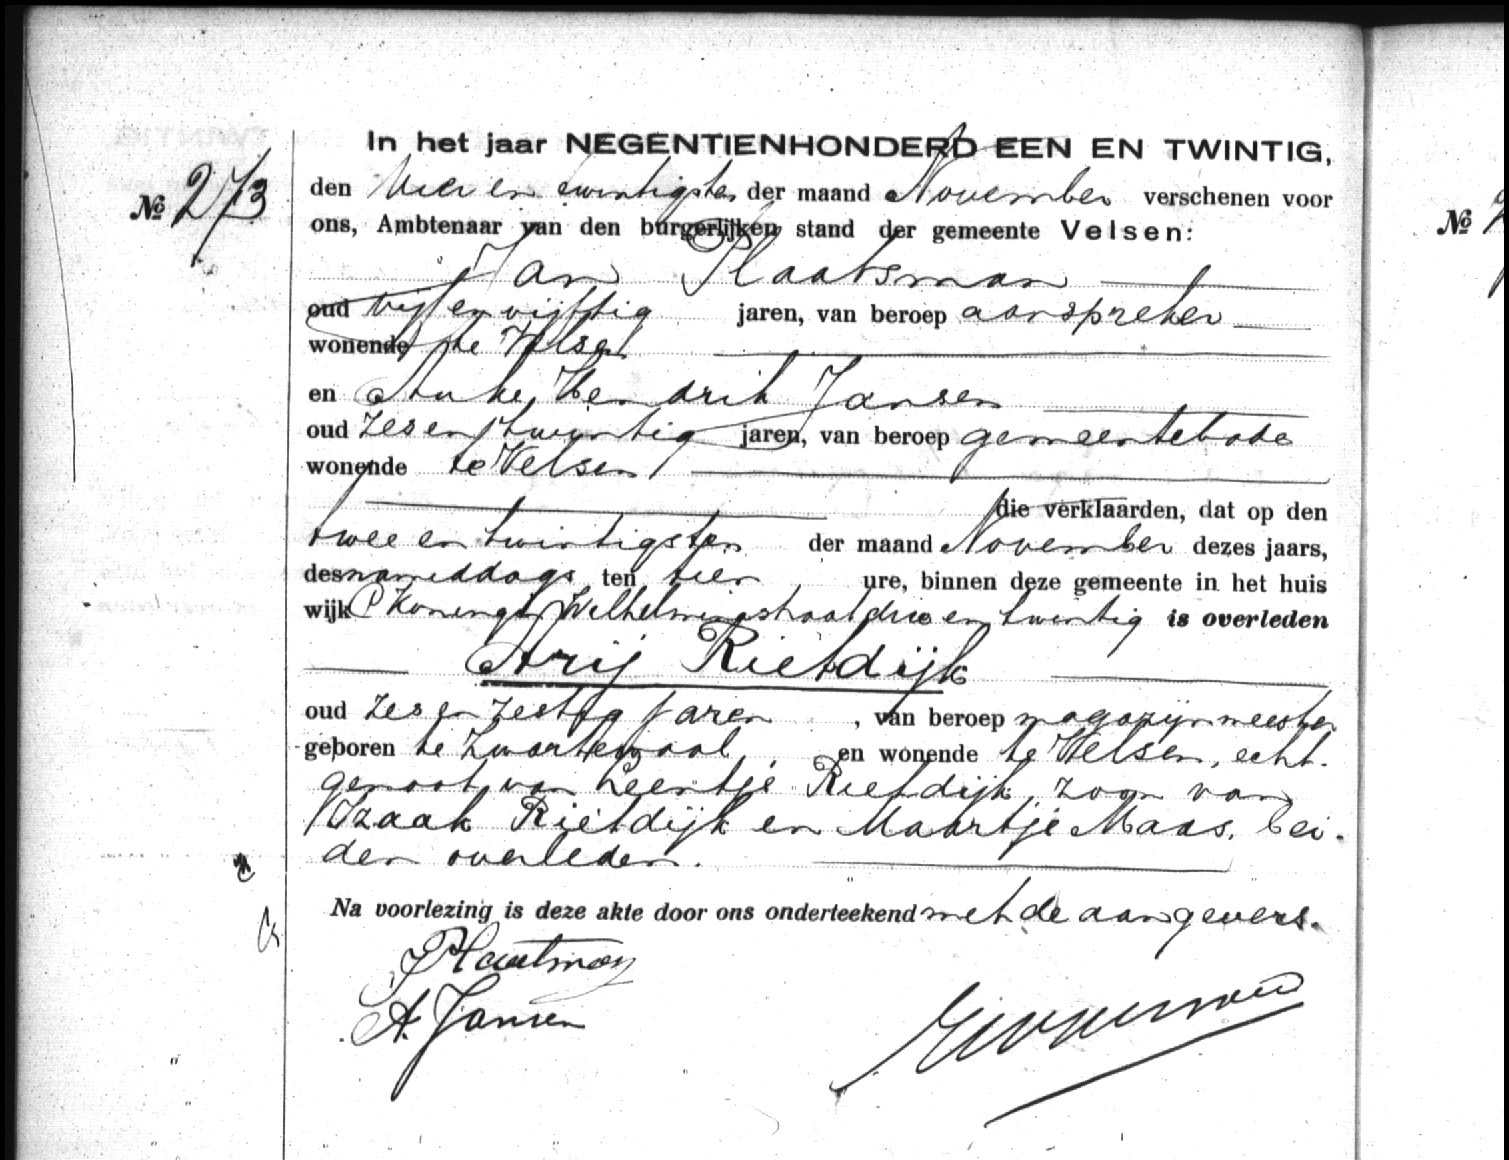 In het jaar NEGENTIENHONDERD EEN EN TWINTIG,
No 273
den vier en twintigsten der maand November verschenen voor
ons, Ambtenaar van den burgerlijken stand der gemeente Velsen:
Jan Plaatsman
oud vijf en vijftig jaren, van beroep aanspreker
wonende te Velsen
en Anthe Hendrik Jansen
oud zes en twintig jaren, van beroep gemeentebode
wonende te Velsen
die verklaarden, dat op den
twee en twintigsten der maand November dezes jaars,
des namiddags ten tien ure, binnen deze gemeente in het huis
wijk P Koningin Wilhelminastraat drie en twintig is overleden
Arij Rietdijk
oud zes en zestig jaren, van beroep magazijnmeester
geboren te Zwartewaal en wonende te Velsen, echt-
genoot van Leentje Rietdijk, zoon van
Izaak Rietdijk en Maartje Maas, bei-
den overleden.
Na voorlezing is deze akte door ons onderteekend met de aangevers.
J Plaatsman
A. Jansen
No